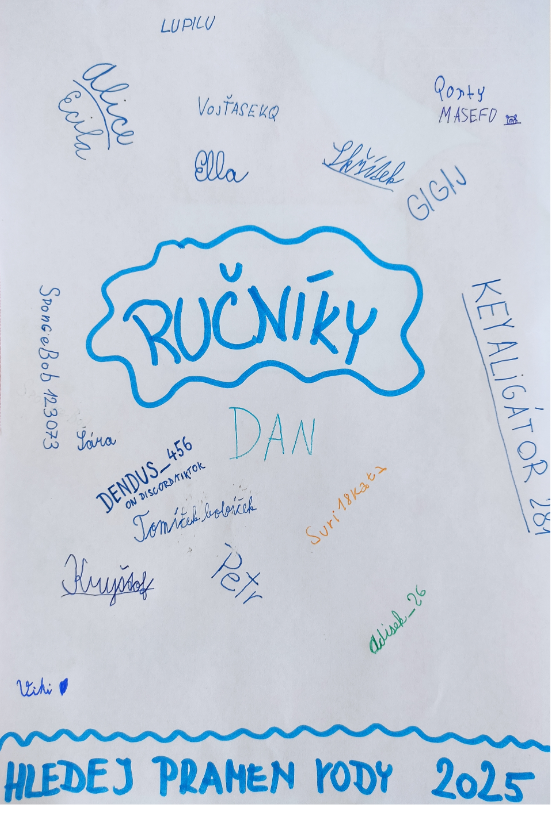 LUPILU
Alice
Ecila
VOJŤASEKQ
Qorty
MASEFO
Ella
Skřítek
GIGIJ
RUČNÍKY
KEYALIGÁTOR 281
SpongeBob 123073
DAN
Sára
DENDUS_456
ON DISCORD/TIKTOK
Tomíček bobíček
Suri18Kata
Kryštof
Petr
adisek_26
Viki
HLEDEJ PRAMEN VODY 2025